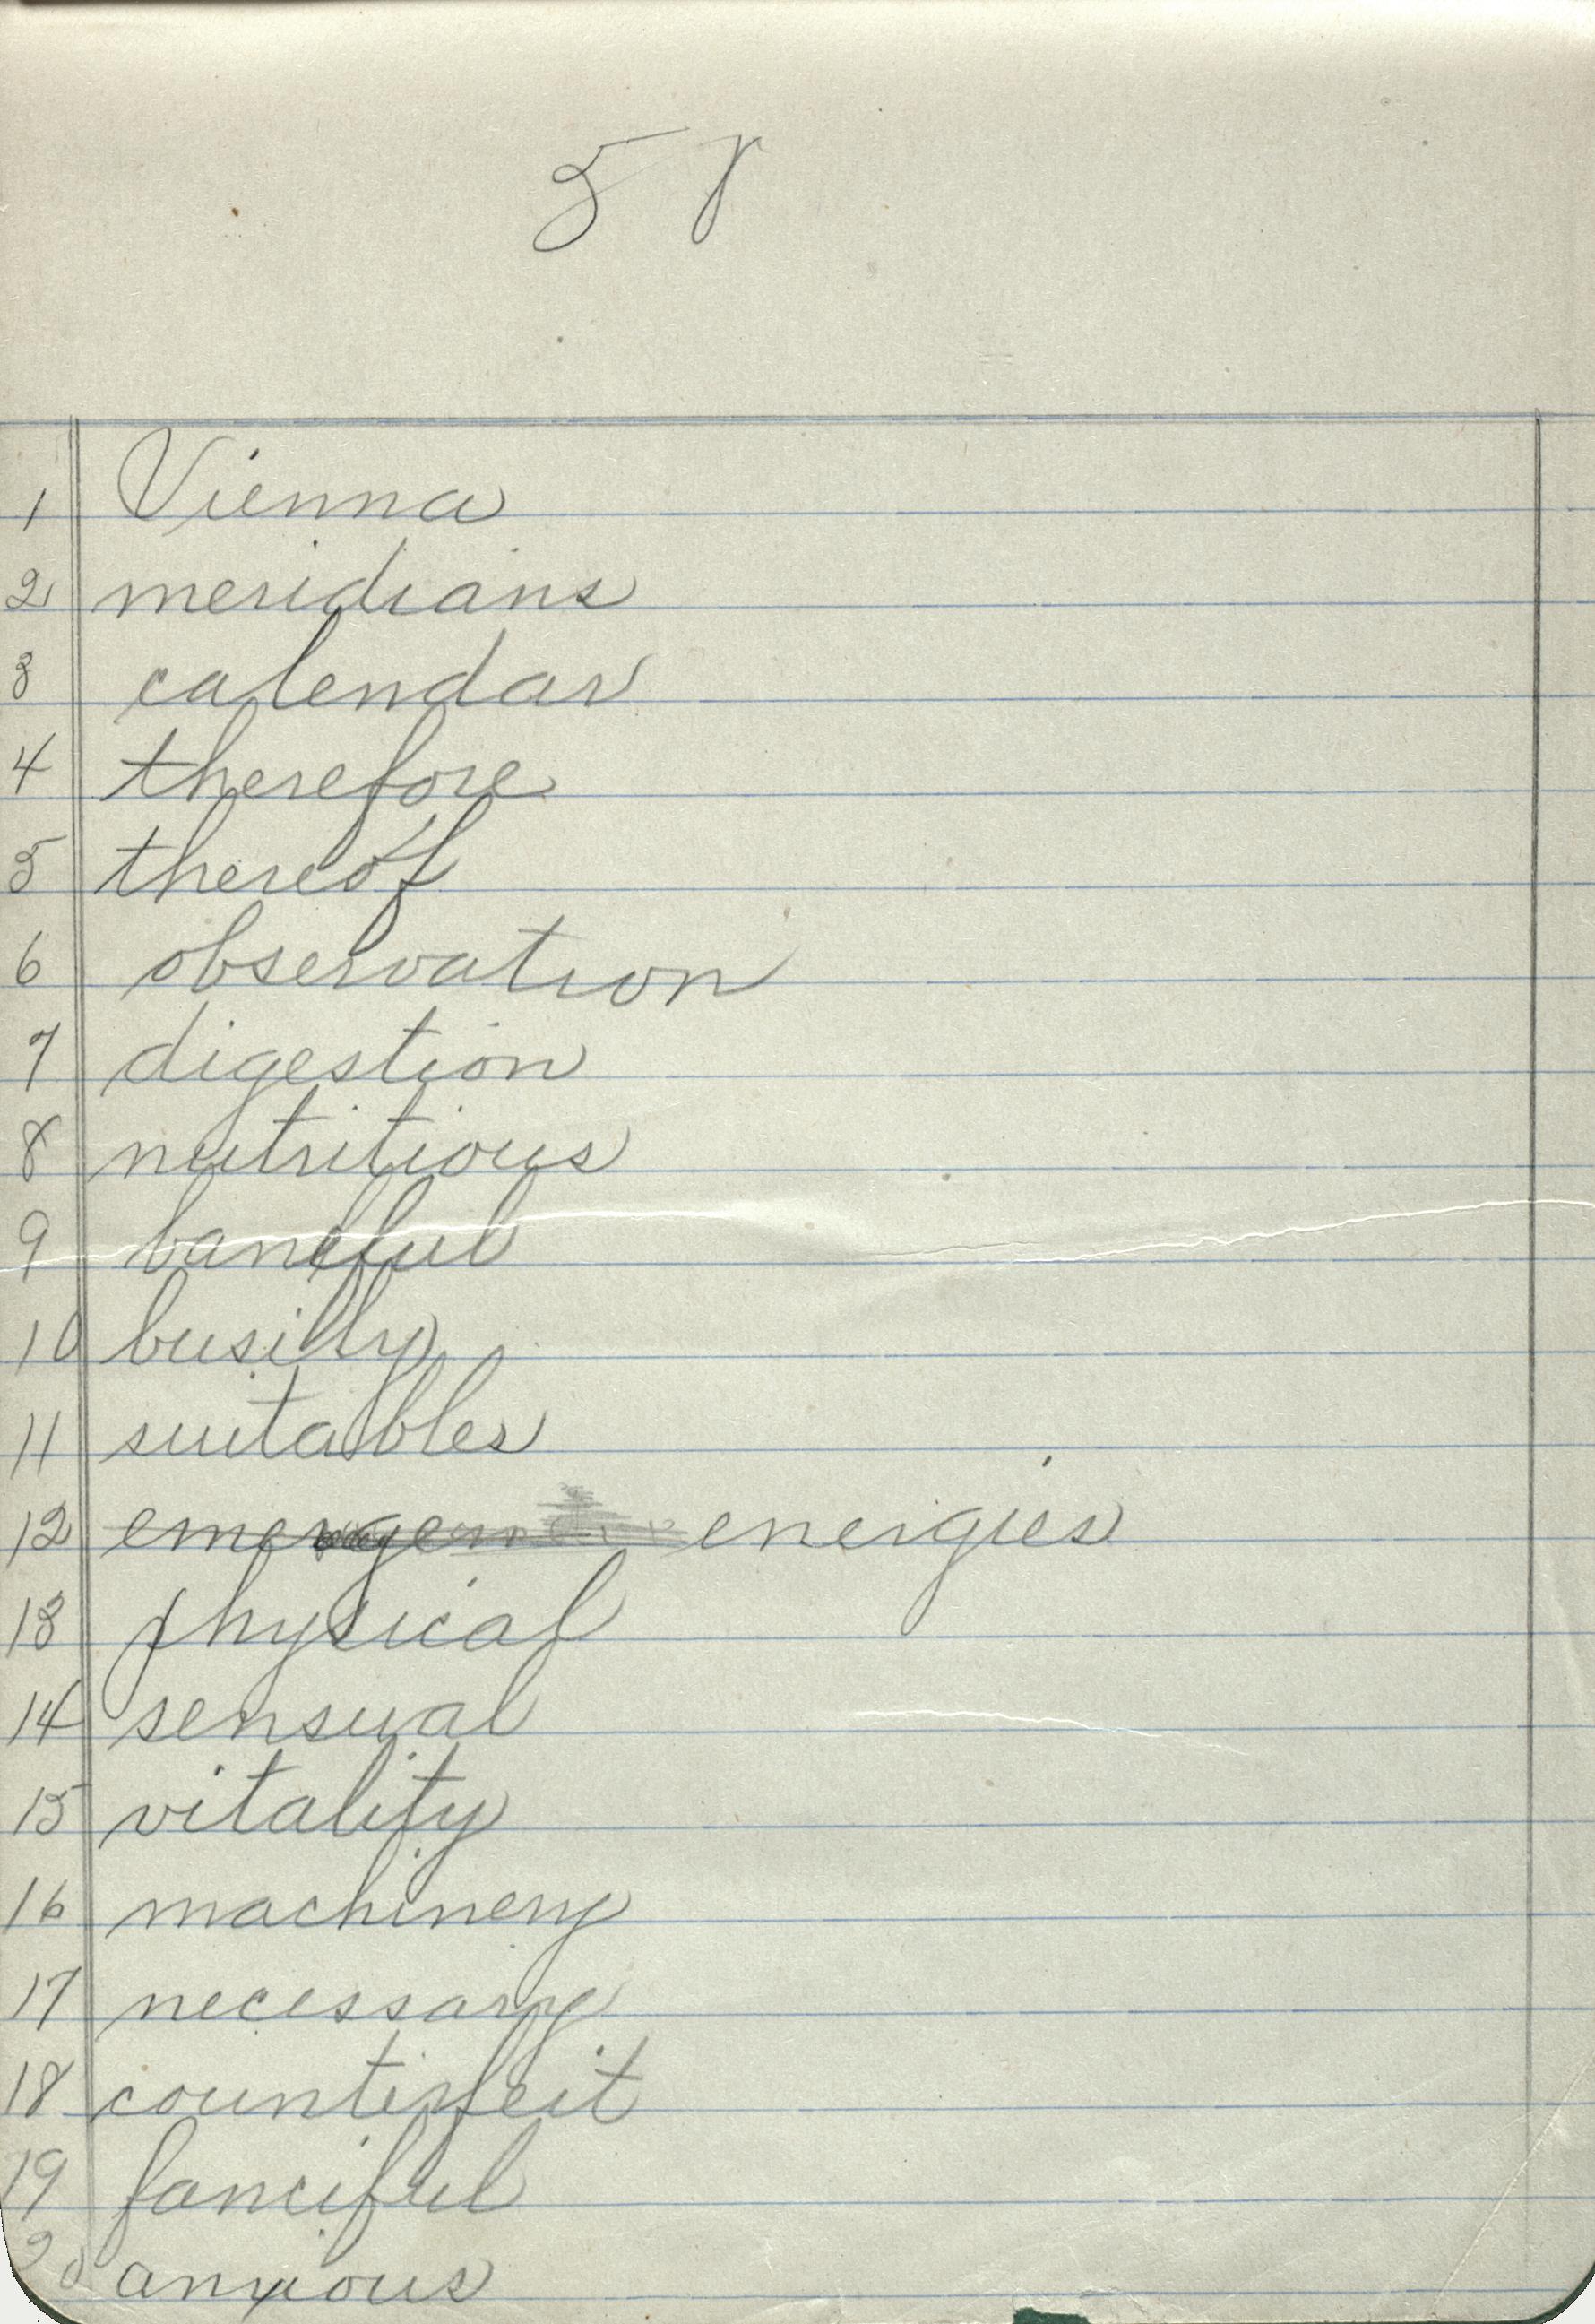 58
1 Vienna
2 meridians
3 calendar
4 therefore
5 thereof
6 observation
7 digestion
8 nutritious
9 baneful
10 busily
11 suitables
12 emergen energies
13 physical
14 sensual
15 vitality
16 machinery
17 necessary
18 counterfeit
19 fanciful
20 anxious